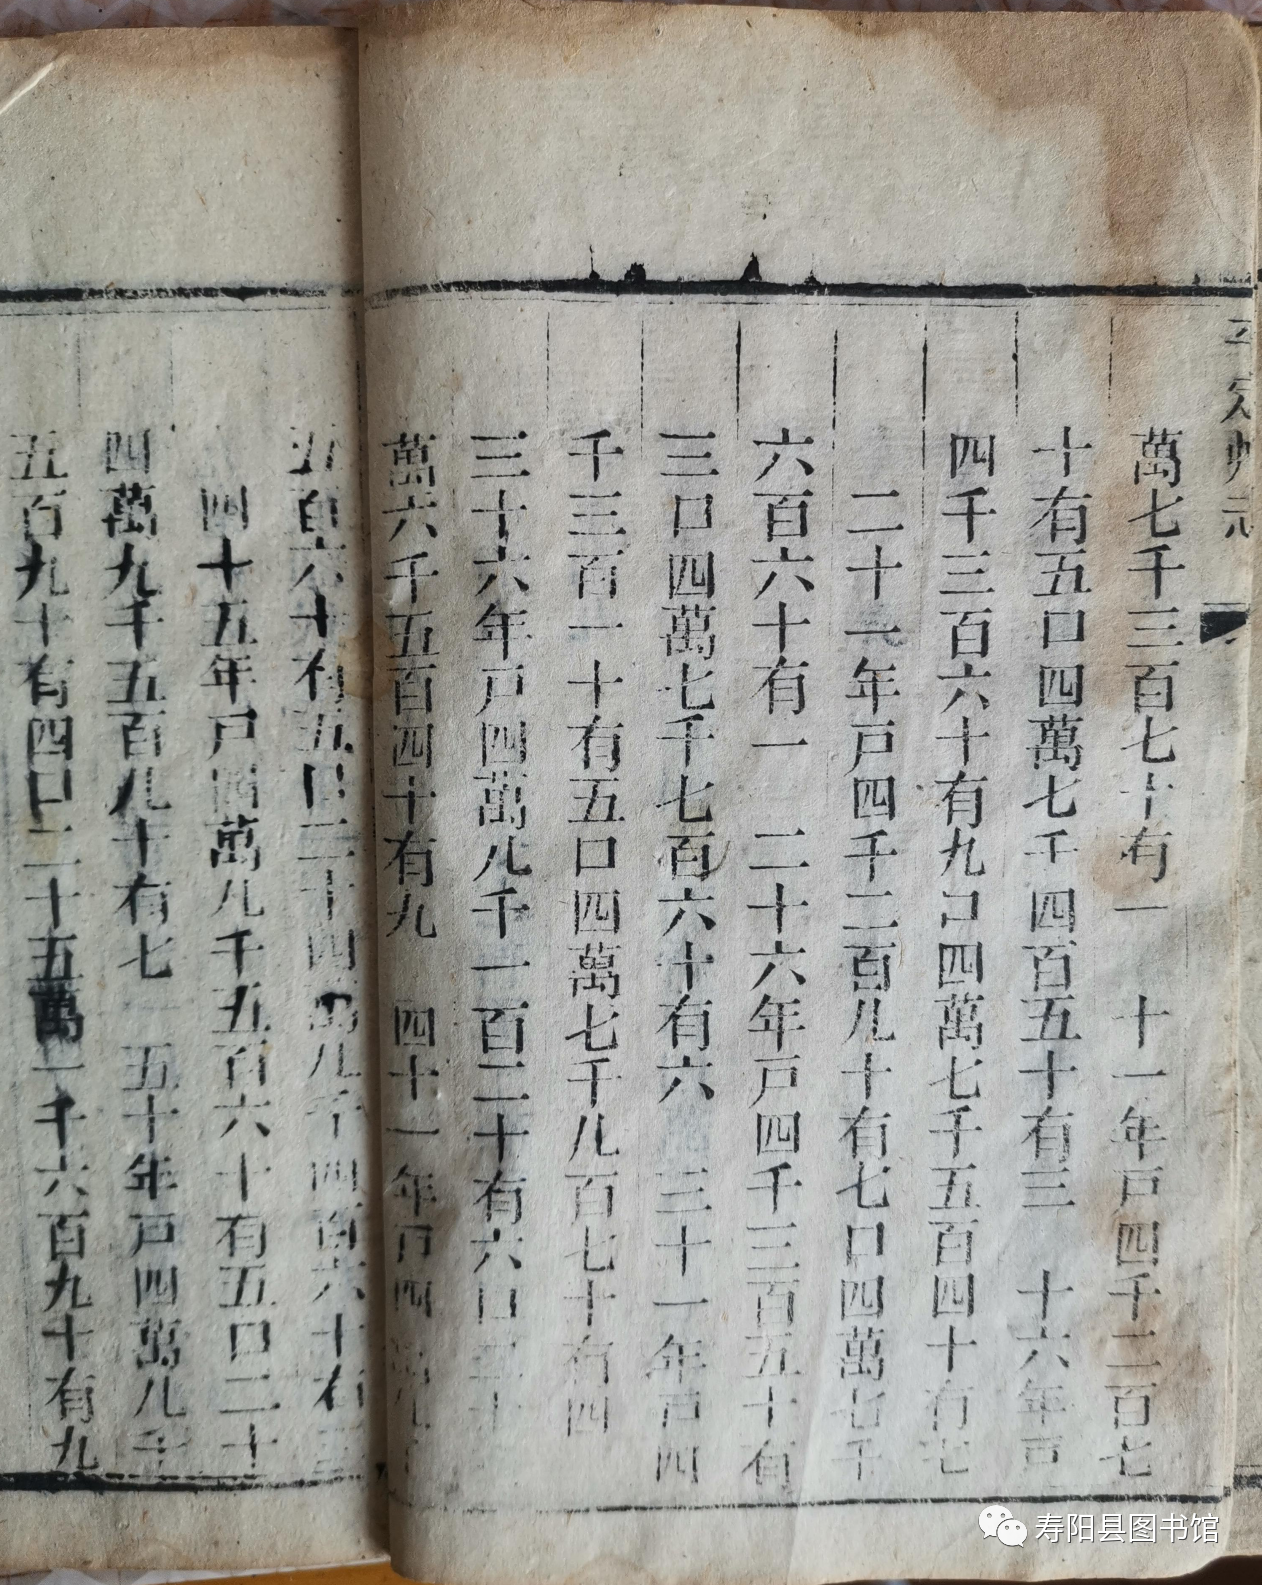 平定州志
萬七千三百七十有一 十一年戸四千二百七
十有五口四萬七千四百五十有三 十六年戸
四千三百六十有九口四萬七千五百四十有七
二十一年戸四千二百八十有七口四萬七千
六百六十有一 二十六年戸四千三百五十有
三口四萬七千七百六十有六 三十一年戸四
千三百一十有五口四萬七千八百七十有四
三十六年戸四萬八千一百二十有六口二十
萬六千五百四十有九 四十一年戸四萬八千
五百六十有五口二十四萬八千四百六十有
四十五年戸四萬八千五百六十有五口二十
四萬九千五百九十有七 五十年戸四萬八千
五百九十有四口二十五萬一千六百九十有九
寿阳县图书馆